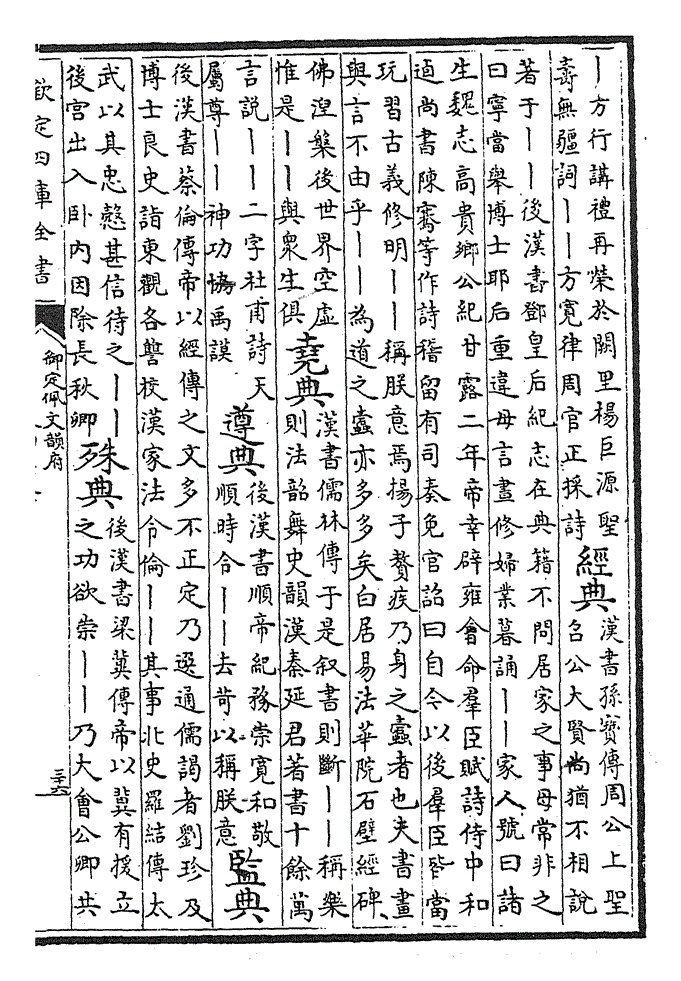 ｜方行講禮再榮於闕里楊巨源聖
壽無疆詞｜｜方寬律周官正採詩
經典
漢書孫寳傳周公上聖
召公大賢尚猶不相說
著于｜｜後漢書鄧皇后紀志在典籍不問居家之事母常非之
曰寧當舉博士耶后重違母言晝修婦業暮誦｜｜家人號曰諸
生魏志高貴鄉公紀甘露二年帝幸辟雍會命羣臣賦詩侍中和
逌尚書陳騫等作詩稽留有司奏免官詔曰自今以後羣臣皆當
玩習古義修明｜｜稱朕意焉揚子贅疾乃身之蠹者也夫書畫
與言不由乎｜｜為道之蠹亦多多矣白居易法華院石壁經碑
佛湼槃後世界空虛
惟是｜｜與衆生俱
堯典
漢書儒林傳于是叙書則斷｜｜稱樂
則法韶舞史韻漢秦延君著書十餘萬
言說｜｜二字杜甫詩天
屬尊｜｜神功協禹謨
遵典
後漢書順帝紀務崇寛和敬
順時令｜｜去苛以稱朕意
監典
後漢書蔡倫傳帝以經傳之文多不正定乃選通儒謁者劉珍及
博士良史詣東觀各讐校漢家法令倫｜｜其事北史羅結傳太
武以其忠慤甚信待之｜｜
後宮出入卧内因除長秋卿
殊典
後漢書梁冀傳帝以冀有援立
之功欲崇｜｜乃大會公卿共
欽定四庫全書
御定佩文韻府
三十六